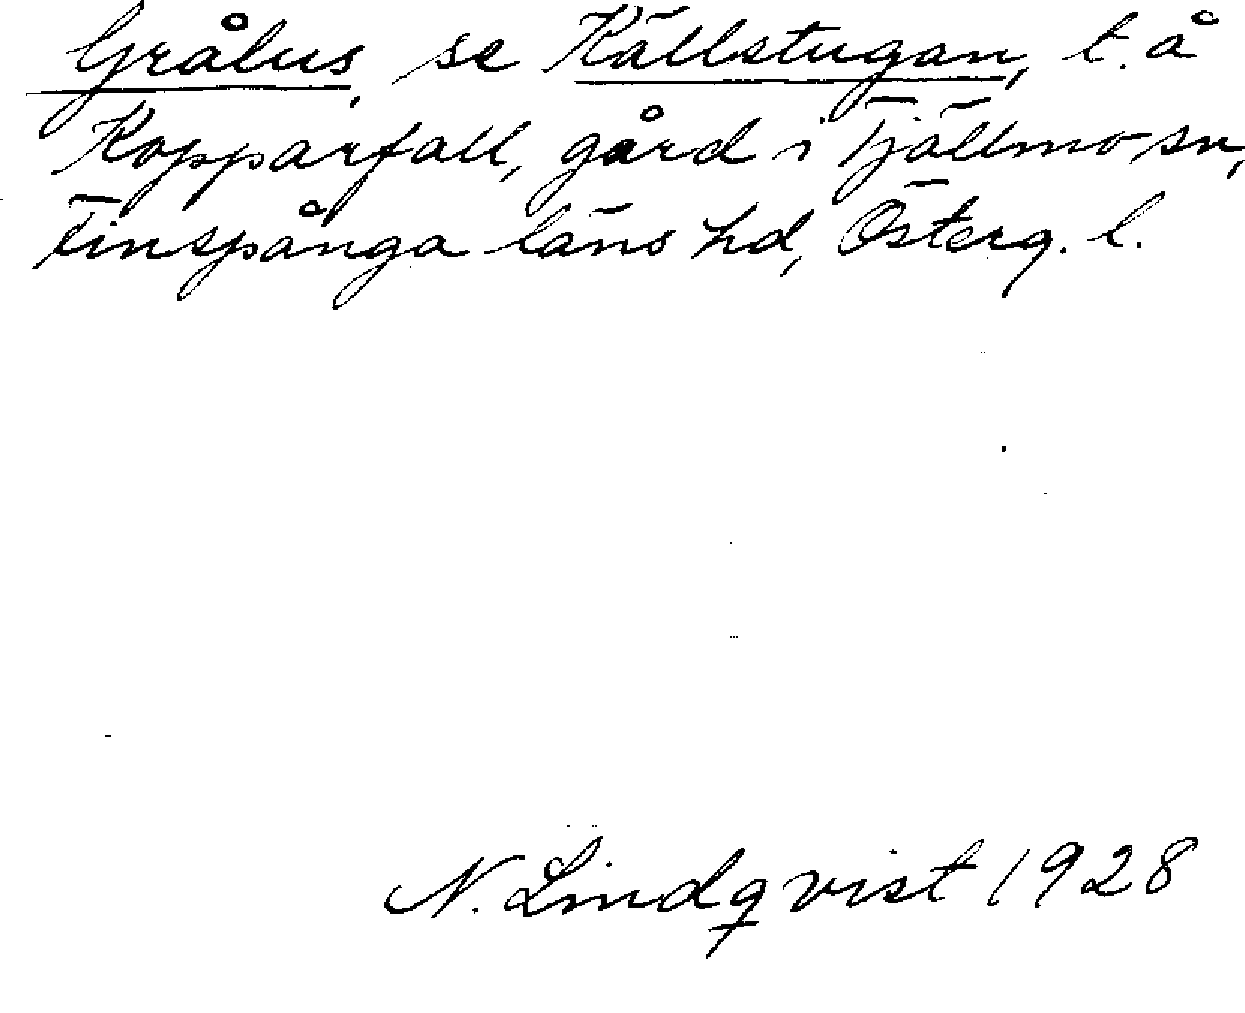 Grålus, se Källstugan, t. å
Kopparfall, gård i Tjällmo sn,
Finspånga läns hd, Österg. l.
N. Lindqvist 1928